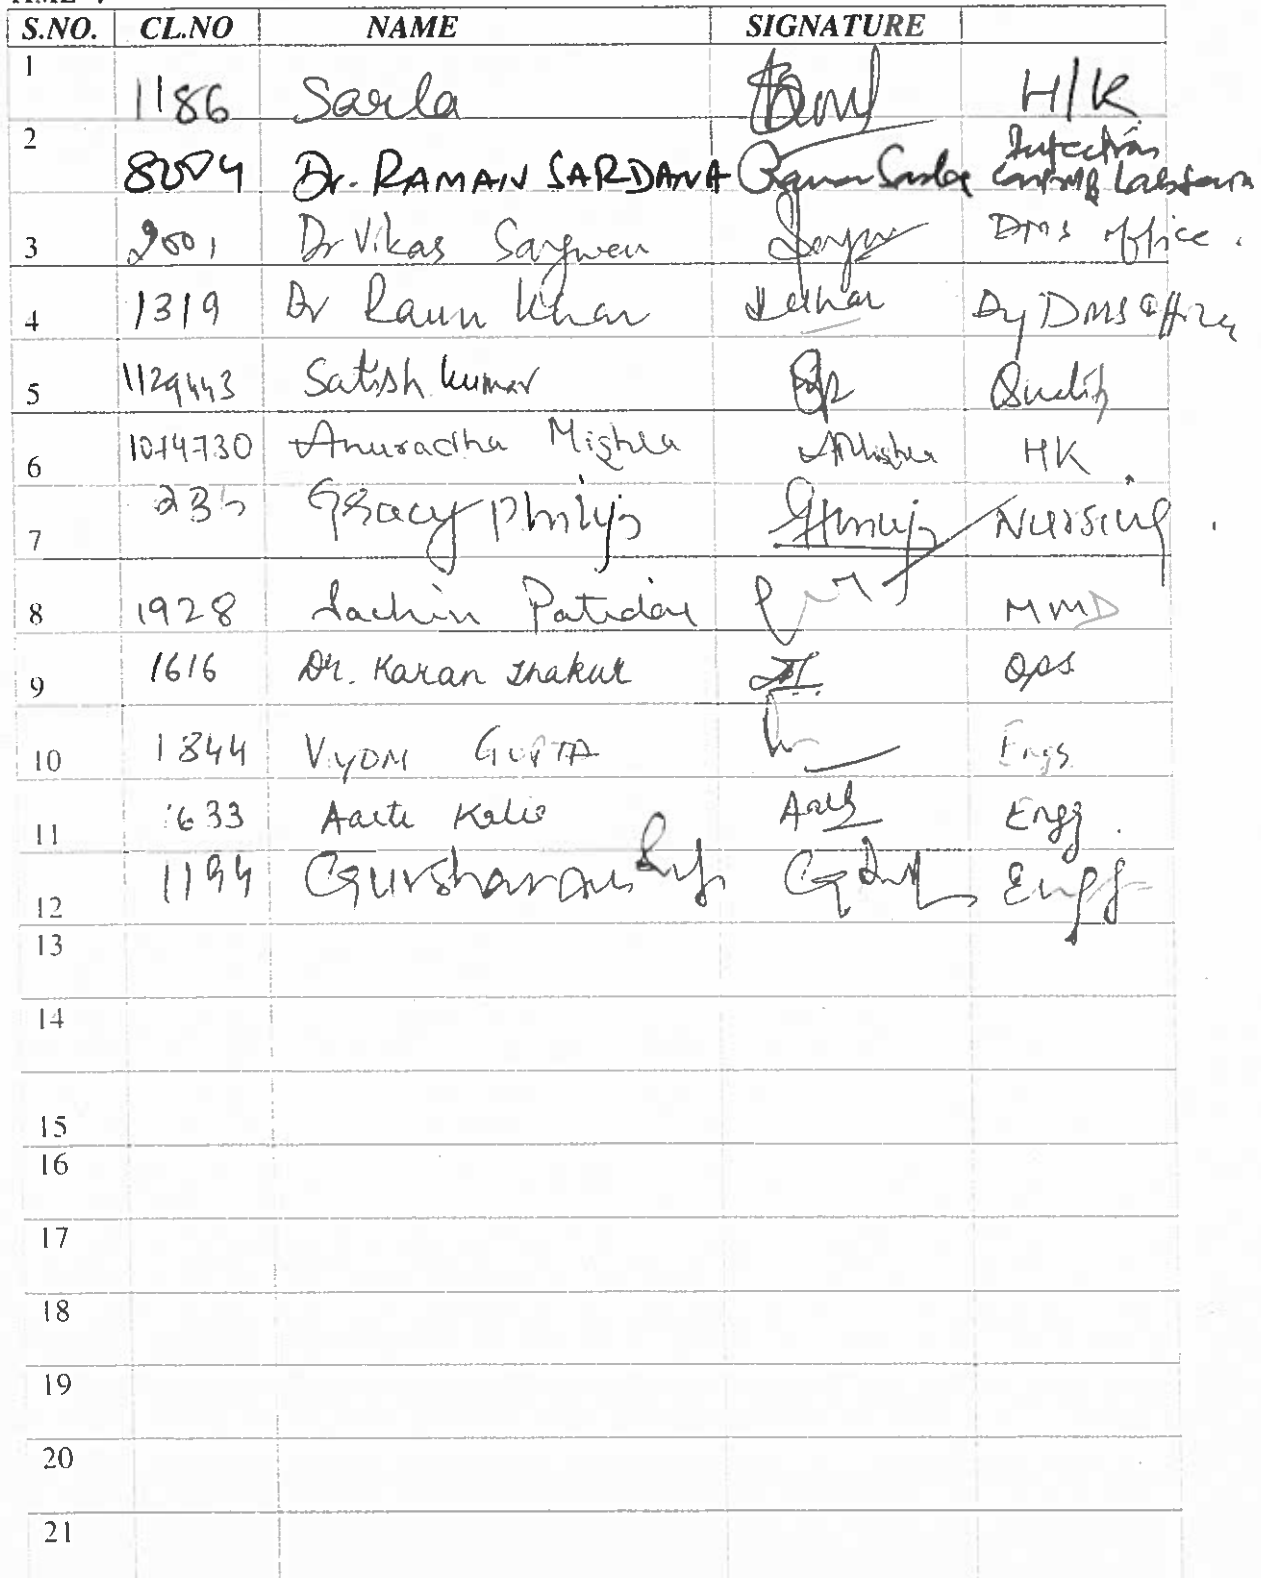 S.NO. CL.NO NAME SIGNATURE
1 1186 Sarla H/K
2 Dr. RAMAN SARDANA Raman Infection
3 Dr Vikas DMS office.
4 1319 Dr Khar Dy DMS Office
5 1129443 Satish Kumar Quality
6 1074730 Anuradha Mishra AMishra HK
7 Gracy Philip Nursing
8 1928 Sachin Patidar MMD
9 1616 Dr. Karan Thakur Ops
10 1844 VYOM GUPTA Engg
11 633 Aarti Engg.
12 1194 Gursharan Engg
13
14
15
16
17
18
19
20
21